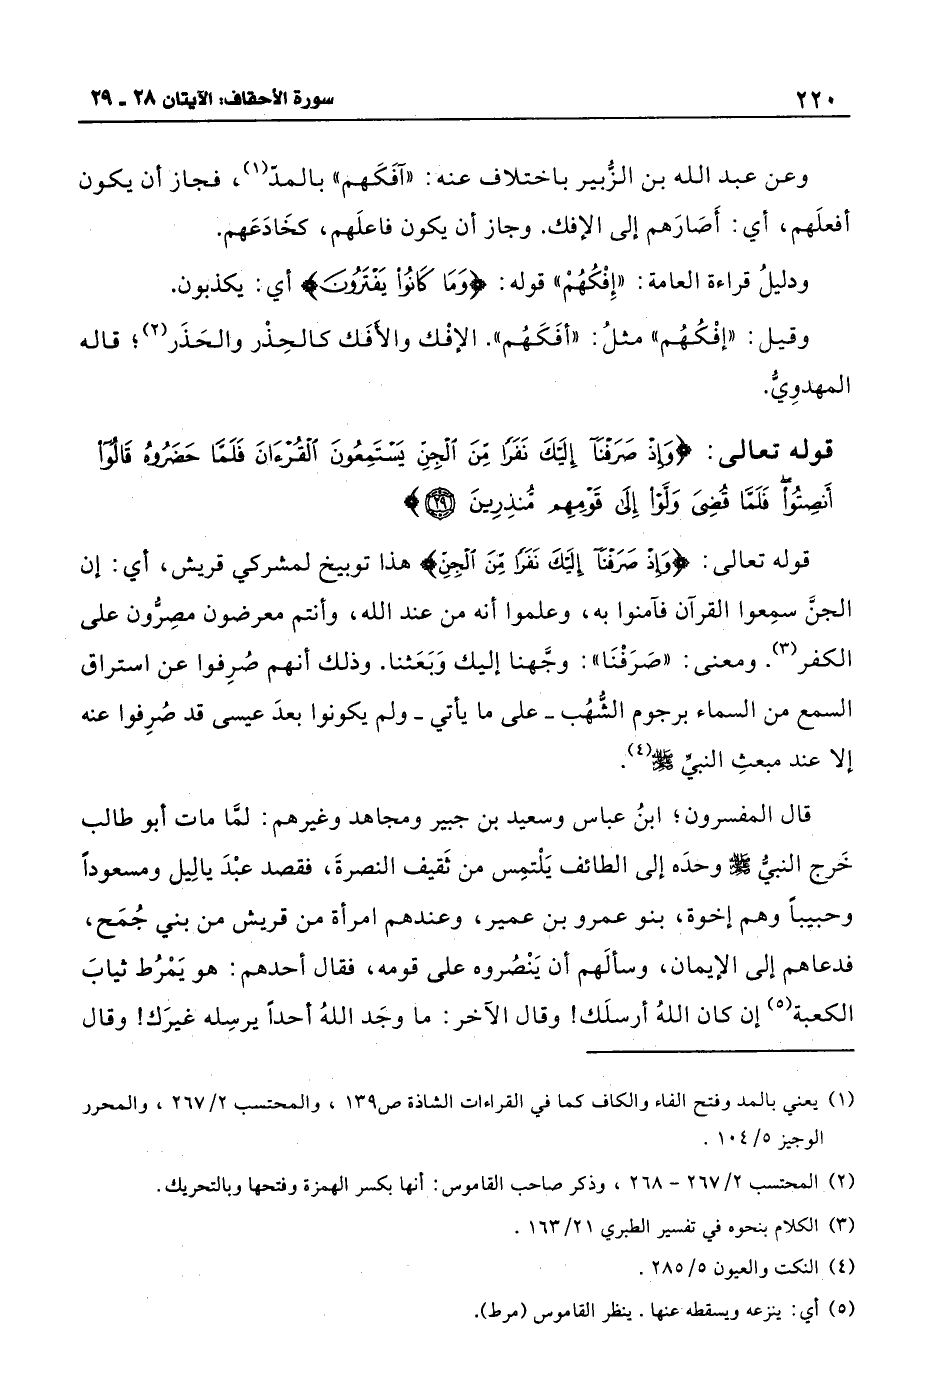 ٢٢٠
سورة الأحقاف: الآيتان ٢٨ - ٢٩
وعن عبد الله بن الزُّبير باختلاف عنه: «آفَكَهم» بالمدّ(١)، فجاز أن يكون
أفعلَهم، أي: أَصَارَهم إلى الإفك. وجاز أن يكون فاعلَهم، كخَادَعَهم.
ودليلُ قراءة العامة: «إِفْكُهُمْ» قوله: ﴿وَمَا كَانُوا۟ يَفْتَرُونَ﴾ أي: يكذبون.
وقيل: «إفْكُهُم» مثلُ: «أفَكَهُم». الإفْك والأَفَك كالحِذْر والحَذَر(٢)؛ قاله
المهدوِيُّ.
قوله تعالى: ﴿وَإِذْ صَرَفْنَآ إِلَيْكَ نَفَرًا مِّنَ ٱلْجِنِّ يَسْتَمِعُونَ ٱلْقُرْءَانَ فَلَمَّا حَضَرُوهُ قَالُوٓا۟
أَنصِتُوا۟ۖ فَلَمَّا قُضِىَ وَلَّوْا۟ إِلَىٰ قَوْمِهِم مُّنذِرِينَ ۝٢٩﴾
قوله تعالى: ﴿وَإِذْ صَرَفْنَآ إِلَيْكَ نَفَرًا مِّنَ ٱلْجِنِّ﴾ هذا توبيخ لمشركي قريش، أي: إن
الجنَّ سمِعوا القرآن فآمنوا به، وعلموا أنه من عند الله، وأنتم معرضون مصِرُّون على
الكفر(٣). ومعنى: «صَرَفْنَا»: وجَّهنا إليك وَبَعَثنا. وذلك أنهم صُرِفوا عن استراق
السمع من السماء برجوم الشُّهُب ـ على ما يأتي ـ ولم يكونوا بعدَ عيسى قد صُرِفوا عنه
إلا عند مبعثِ النبيِّ ﷺ(٤).
قال المفسرون؛ ابنُ عباس وسعيد بن جبير ومجاهد وغيرهم: لمَّا مات أبو طالب
خَرج النبيُّ ﷺ وحدَه إلى الطائف يَلْتمِس من ثَقيف النصرةَ، فقصد عبْدَ ياليل ومسعوداً
وحبيباً وهم إخوة، بنو عمرو بن عمير، وعندهم امرأة من قريش من بني جُمَح،
فدعاهم إلى الإيمان، وسألَهم أن يَنْصُروه على قومه، فقال أحدهم: هو يَمْرُط ثيابَ
الكعبة(٥) إن كان اللهُ أرسلَك! وقال الآخر: ما وجَد اللهُ أحداً يرسِله غيرَك! وقال
(١) يعني بالمد وفتح الفاء والكاف كما في القراءات الشاذة ص١٣٩ ، والمحتسب ٢٦٧/٢ ، والمحرر
الوجيز ١٠٤/٥ .
(٢) المحتسب ٢٦٧/٢ - ٢٦٨ ، وذكر صاحب القاموس: أنها بكسر الهمزة وفتحها وبالتحريك.
(٣) الكلام بنحوه في تفسير الطبري ١٦٣/٢١ .
(٤) النكت والعيون ٢٨٥/٥ .
(٥) أي: ينزعه ويسقطه عنها. ينظر القاموس (مرط).